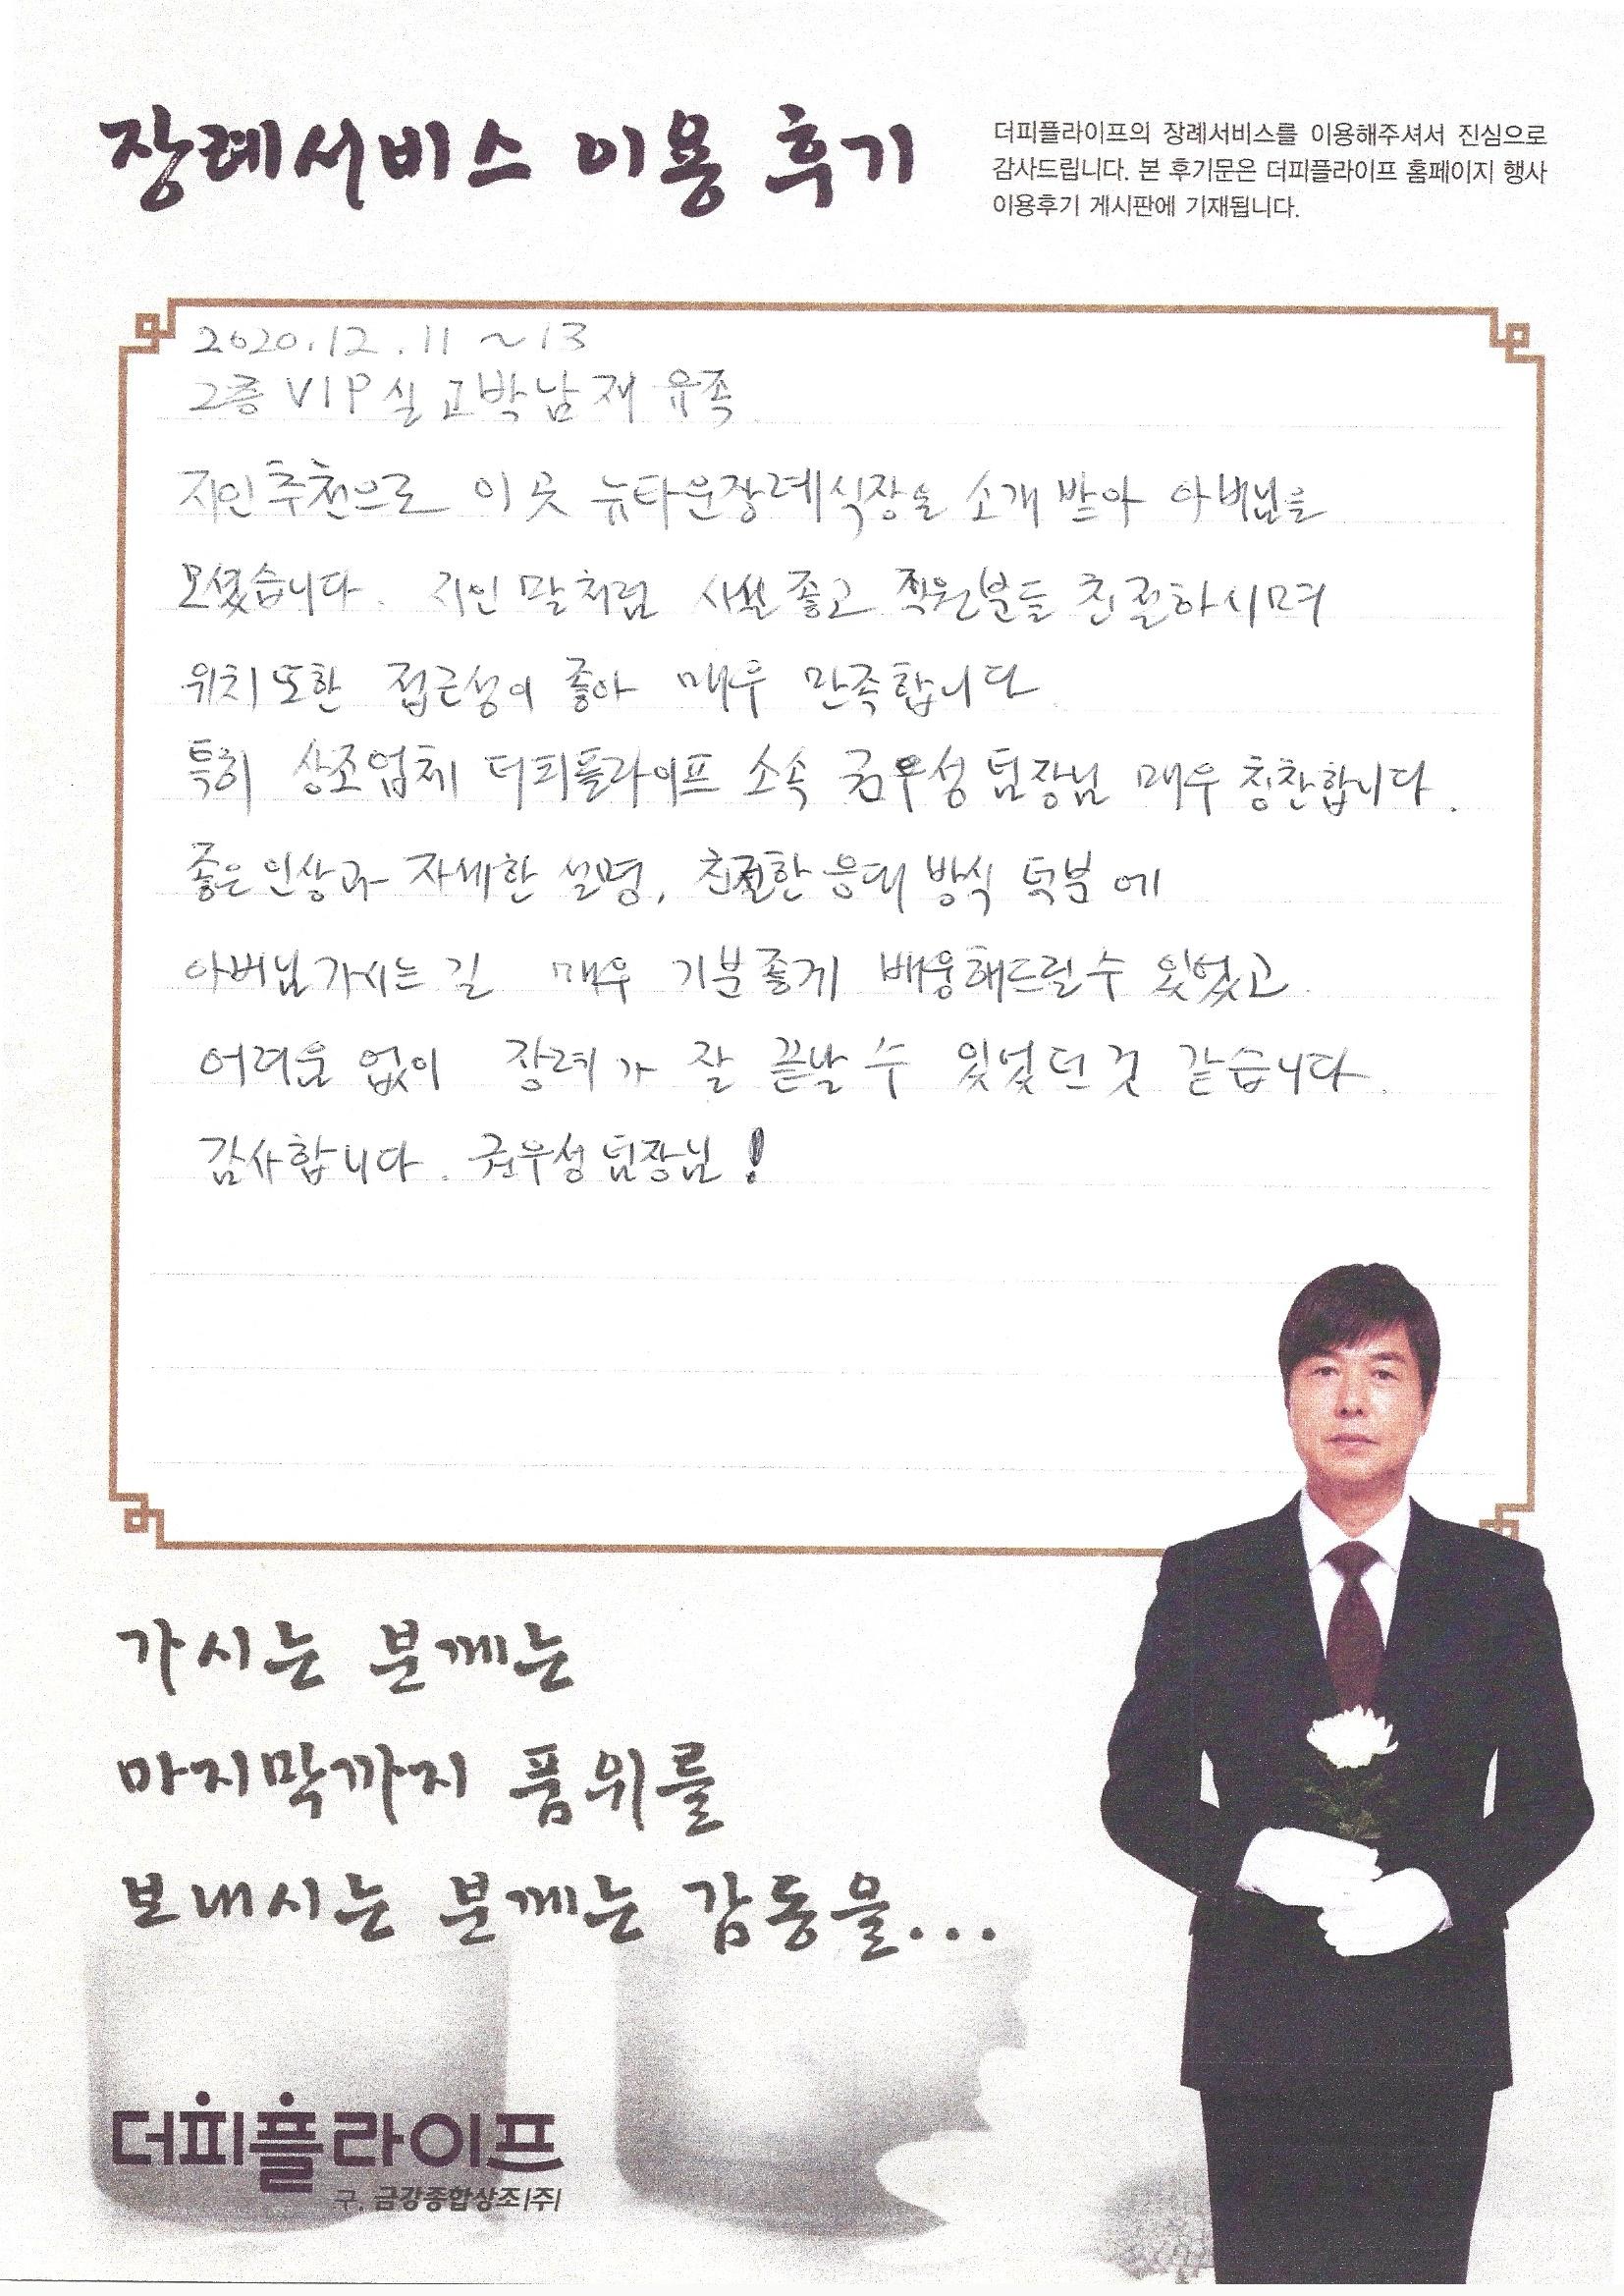 장례서비스 이용 후기
더피플라이프의 장례서비스를 이용해주셔서 진심으로
감사드립니다. 본 후기문은 더피플라이프 홈페이지 행사
이용후기 게시판에 기재됩니다.
2020.12.11 ~ 13
2층 VIP실 고박남재 유족
지인추천으로 이곳 뉴타운장례식장을 소개받아 아버님을
모셨습니다. 지인말처럼 시설좋고 직원분들 친절하시며
위치또한 접근성이 좋아 매우 만족합니다
특히 상조업체 더피플라이프 소속 권우성팀장님 매우 칭찬합니다.
좋은인상과 자세한 설명, 친절한응대방식 덕분에
아버님가시는길 매우 기분좋게 배웅해드릴수 있었고
어려운 없이 장례가 잘 끝날 수 있었던것 같습니다.
감사합니다. 권우성팀장님!
가시는 분께는
마지막까지 품위를
보내시는 분께는 감동을...
더피플라이프
구. 금강종합상조|주|